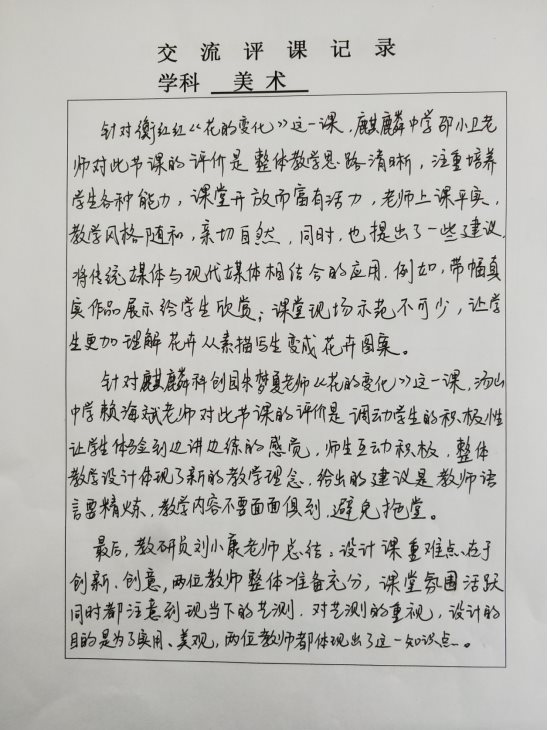 交流评课记录
学科 美术
针对衡红红《花的变化》这一课，麒麟中学邵小卫老
师对此节课的评价是整体教学思路清晰，注重培养
学生各种能力，课堂开放而富有活力，老师上课平实，
教学风格随和，亲切自然，同时，也提出了一些建议，
将传统媒体与现代媒体相结合的应用。例如，带幅真
实作品展示给学生欣赏；课堂现场示范不可少，让学
生更加理解花卉从素描写生变成花卉图案。
针对麒麟科创园朱梦夏老师《花的变化》这一课，汤山
中学赖海斌老师对此节课的评价是调动学生的积极性
让学生体验到边讲边练的感觉，师生互动积极，整体
教学设计体现了新的教学理念，给出的建议是教师语
言要精炼，教学内容不要面面俱到，避免拖堂。
最后，教研员刘小康老师总结：设计课重难点在于
创新、创意，两位教师整体准备充分，课堂氛围活跃
同时都注意到现当下的艺测，对艺测的重视，设计的
目的是为了实用、美观，两位教师都体现出了这一知识点。